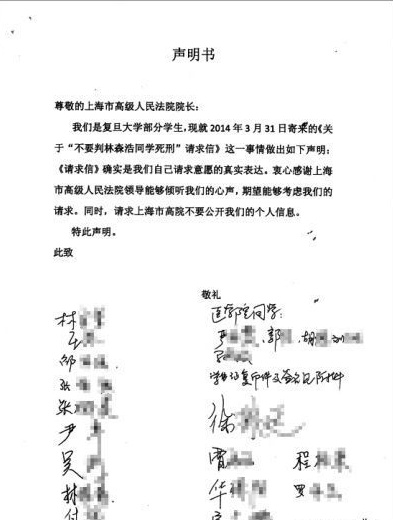 声明书
尊敬的上海市高级人民法院院长：
我们是复旦大学部分学生，现就 2014 年 3 月 31 日寄来的《关
于“不要判林森浩同学死刑”请求信》这一事情做出如下声明：
《请求信》确实是我们自己请求意愿的真实表达。衷心感谢上海
市高级人民法院领导能够倾听我们的心声，期望能够考虑我们的
请求。同时，请求上海市高院不要公开我们的个人信息。
特此声明。
此致
敬礼
医学院同学：
林
郭 胡 刘
邹
张
学生证复印件及签名见附件
张
徐
尹
吴
曹 程
林
华 罗
付